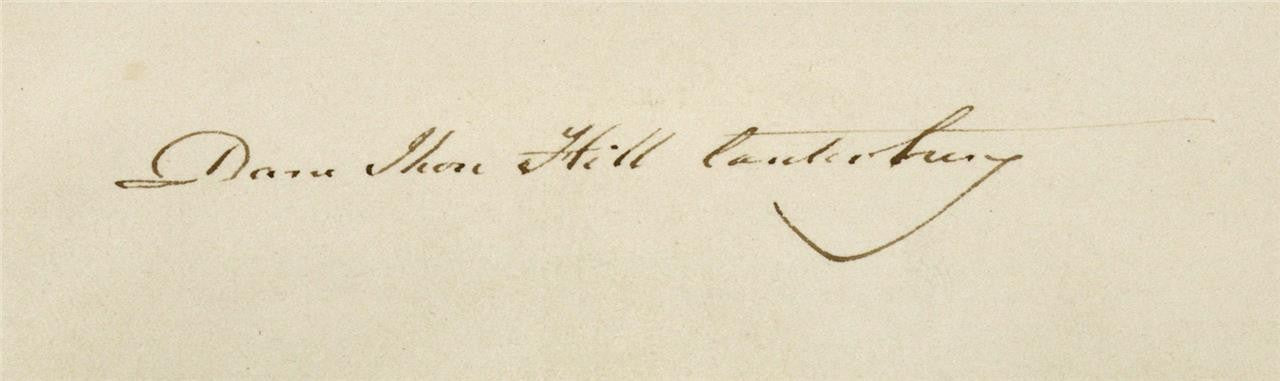 Dane Jhon Hill Canterbury